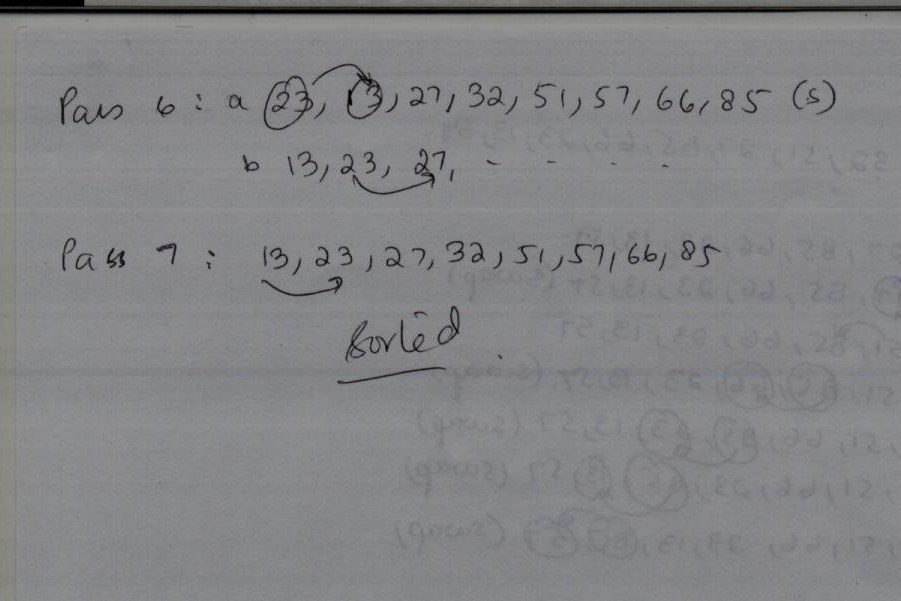 Pass 6 : a 23, 13, 27, 32, 51, 57, 66, 85 (s)
b 13, 23, 27, - - . .
Pass 7 : 13, 23, 27, 32, 51, 57, 66, 85
Sorted.